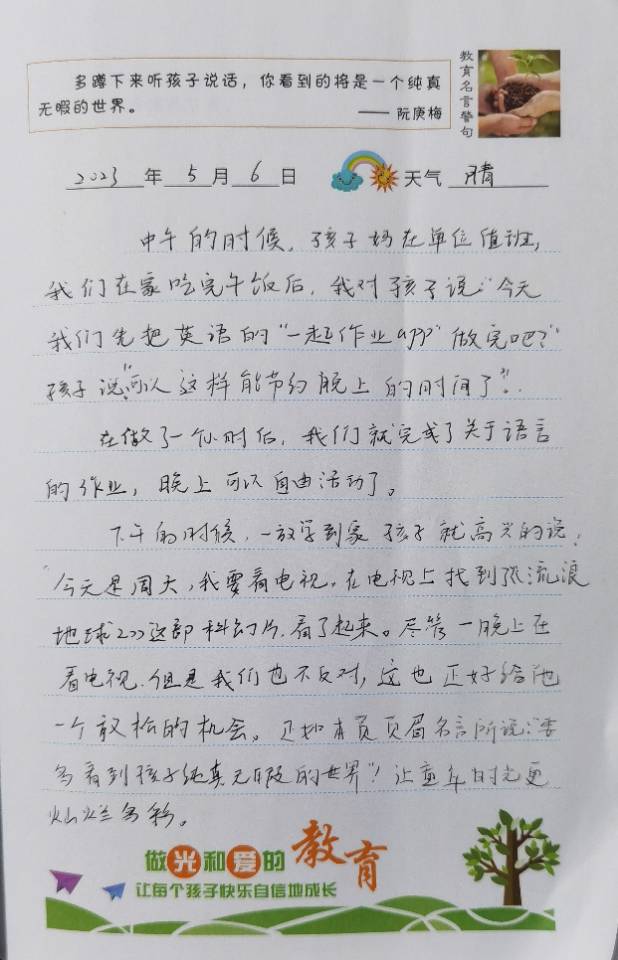 多蹲下来听孩子说话，你看到的将是一个纯真
无暇的世界。
—— 阮庚梅
教育名言警句
2023 年 5 月 6 日 天气 晴
中午的时候，孩子妈在单位值班，
我们在家吃完午饭后，我对孩子说：“今天
我们先把英语的“一起作业app”做完吧？”
孩子说“可以这样能节约晚上的时间了”。
在做了一个小时后，我们就完成了关于语言
的作业，晚上可以自由活动了。
下午的时候，一放学到家孩子就高兴的说：
“今天是周六，我要看电视。在电视上找到《流浪
地球2》这部科幻片，看了起来。尽管一晚上在
看电视，但是我们也不反对，这也正好给他
一个放松的机会。正如本页页眉名言所说：“要
多看到孩子纯真无暇的世界”！让童年时光更
灿烂多彩。
做光和爱的教育
让每个孩子快乐自信地成长